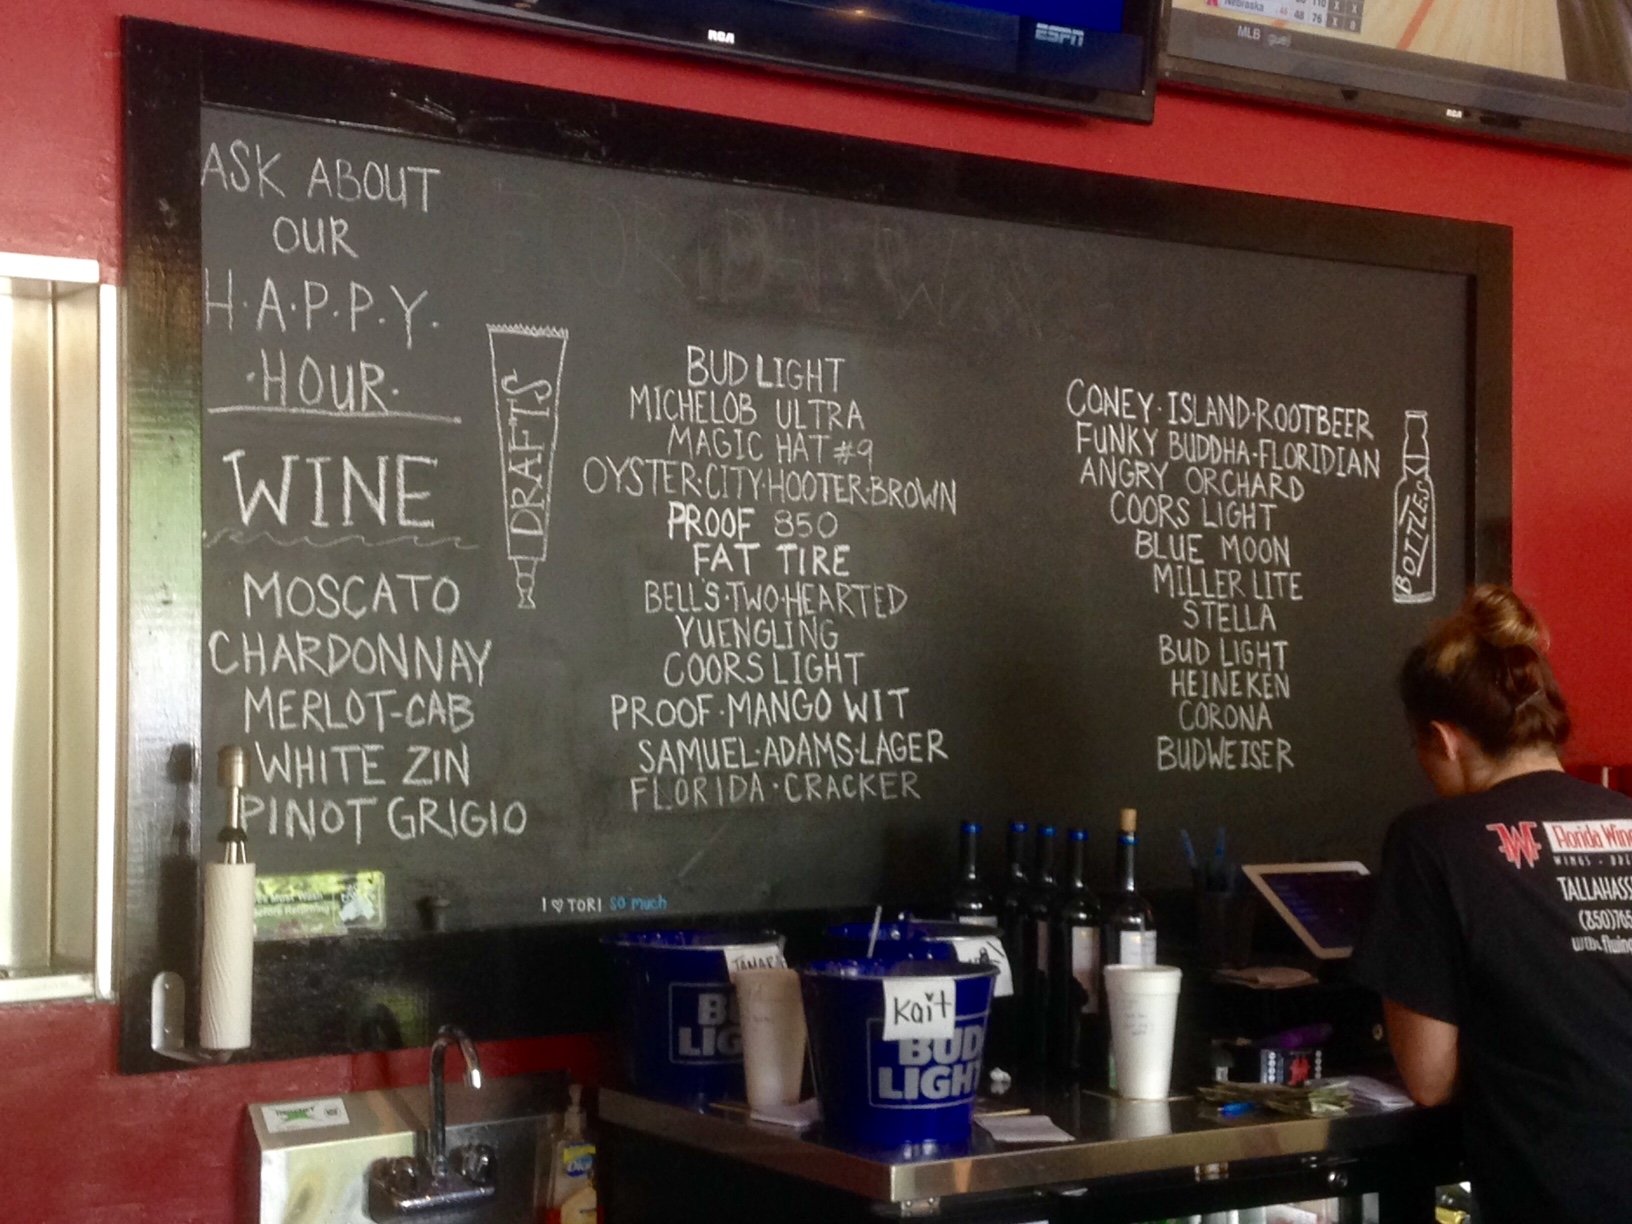 RCA
ESPN
Nebraska 48 76
MLB
RCA
ASK ABOUT
OUR
H·A·P·P·Y·
·HOUR·
WINE
MOSCATO
CHARDONNAY
MERLOT-CAB
WHITE ZIN
PINOT GRIGIO
DRAFTS
BUD LIGHT
MICHELOB ULTRA
MAGIC HAT #9
OYSTER·CITY·HOOTER·BROWN
PROOF 850
FAT TIRE
BELL'S·TWO·HEARTED
YUENGLING
COORS LIGHT
PROOF·MANGO WIT
SAMUEL·ADAMS·LAGER
FLORIDA·CRACKER
CONEY·ISLAND·ROOTBEER
FUNKY BUDDHA·FLORIDIAN
ANGRY ORCHARD
COORS LIGHT
BLUE MOON
MILLER LITE
STELLA
BUD LIGHT
HEINEKEN
CORONA
BUDWEISER
BOTTLES
I ♡ TORI SO much
Must Wash
TAMAR
BU
LIG
Kait
BUD
LIGHT
Florida Wing
WINGS
TALLAHASS
(850)765